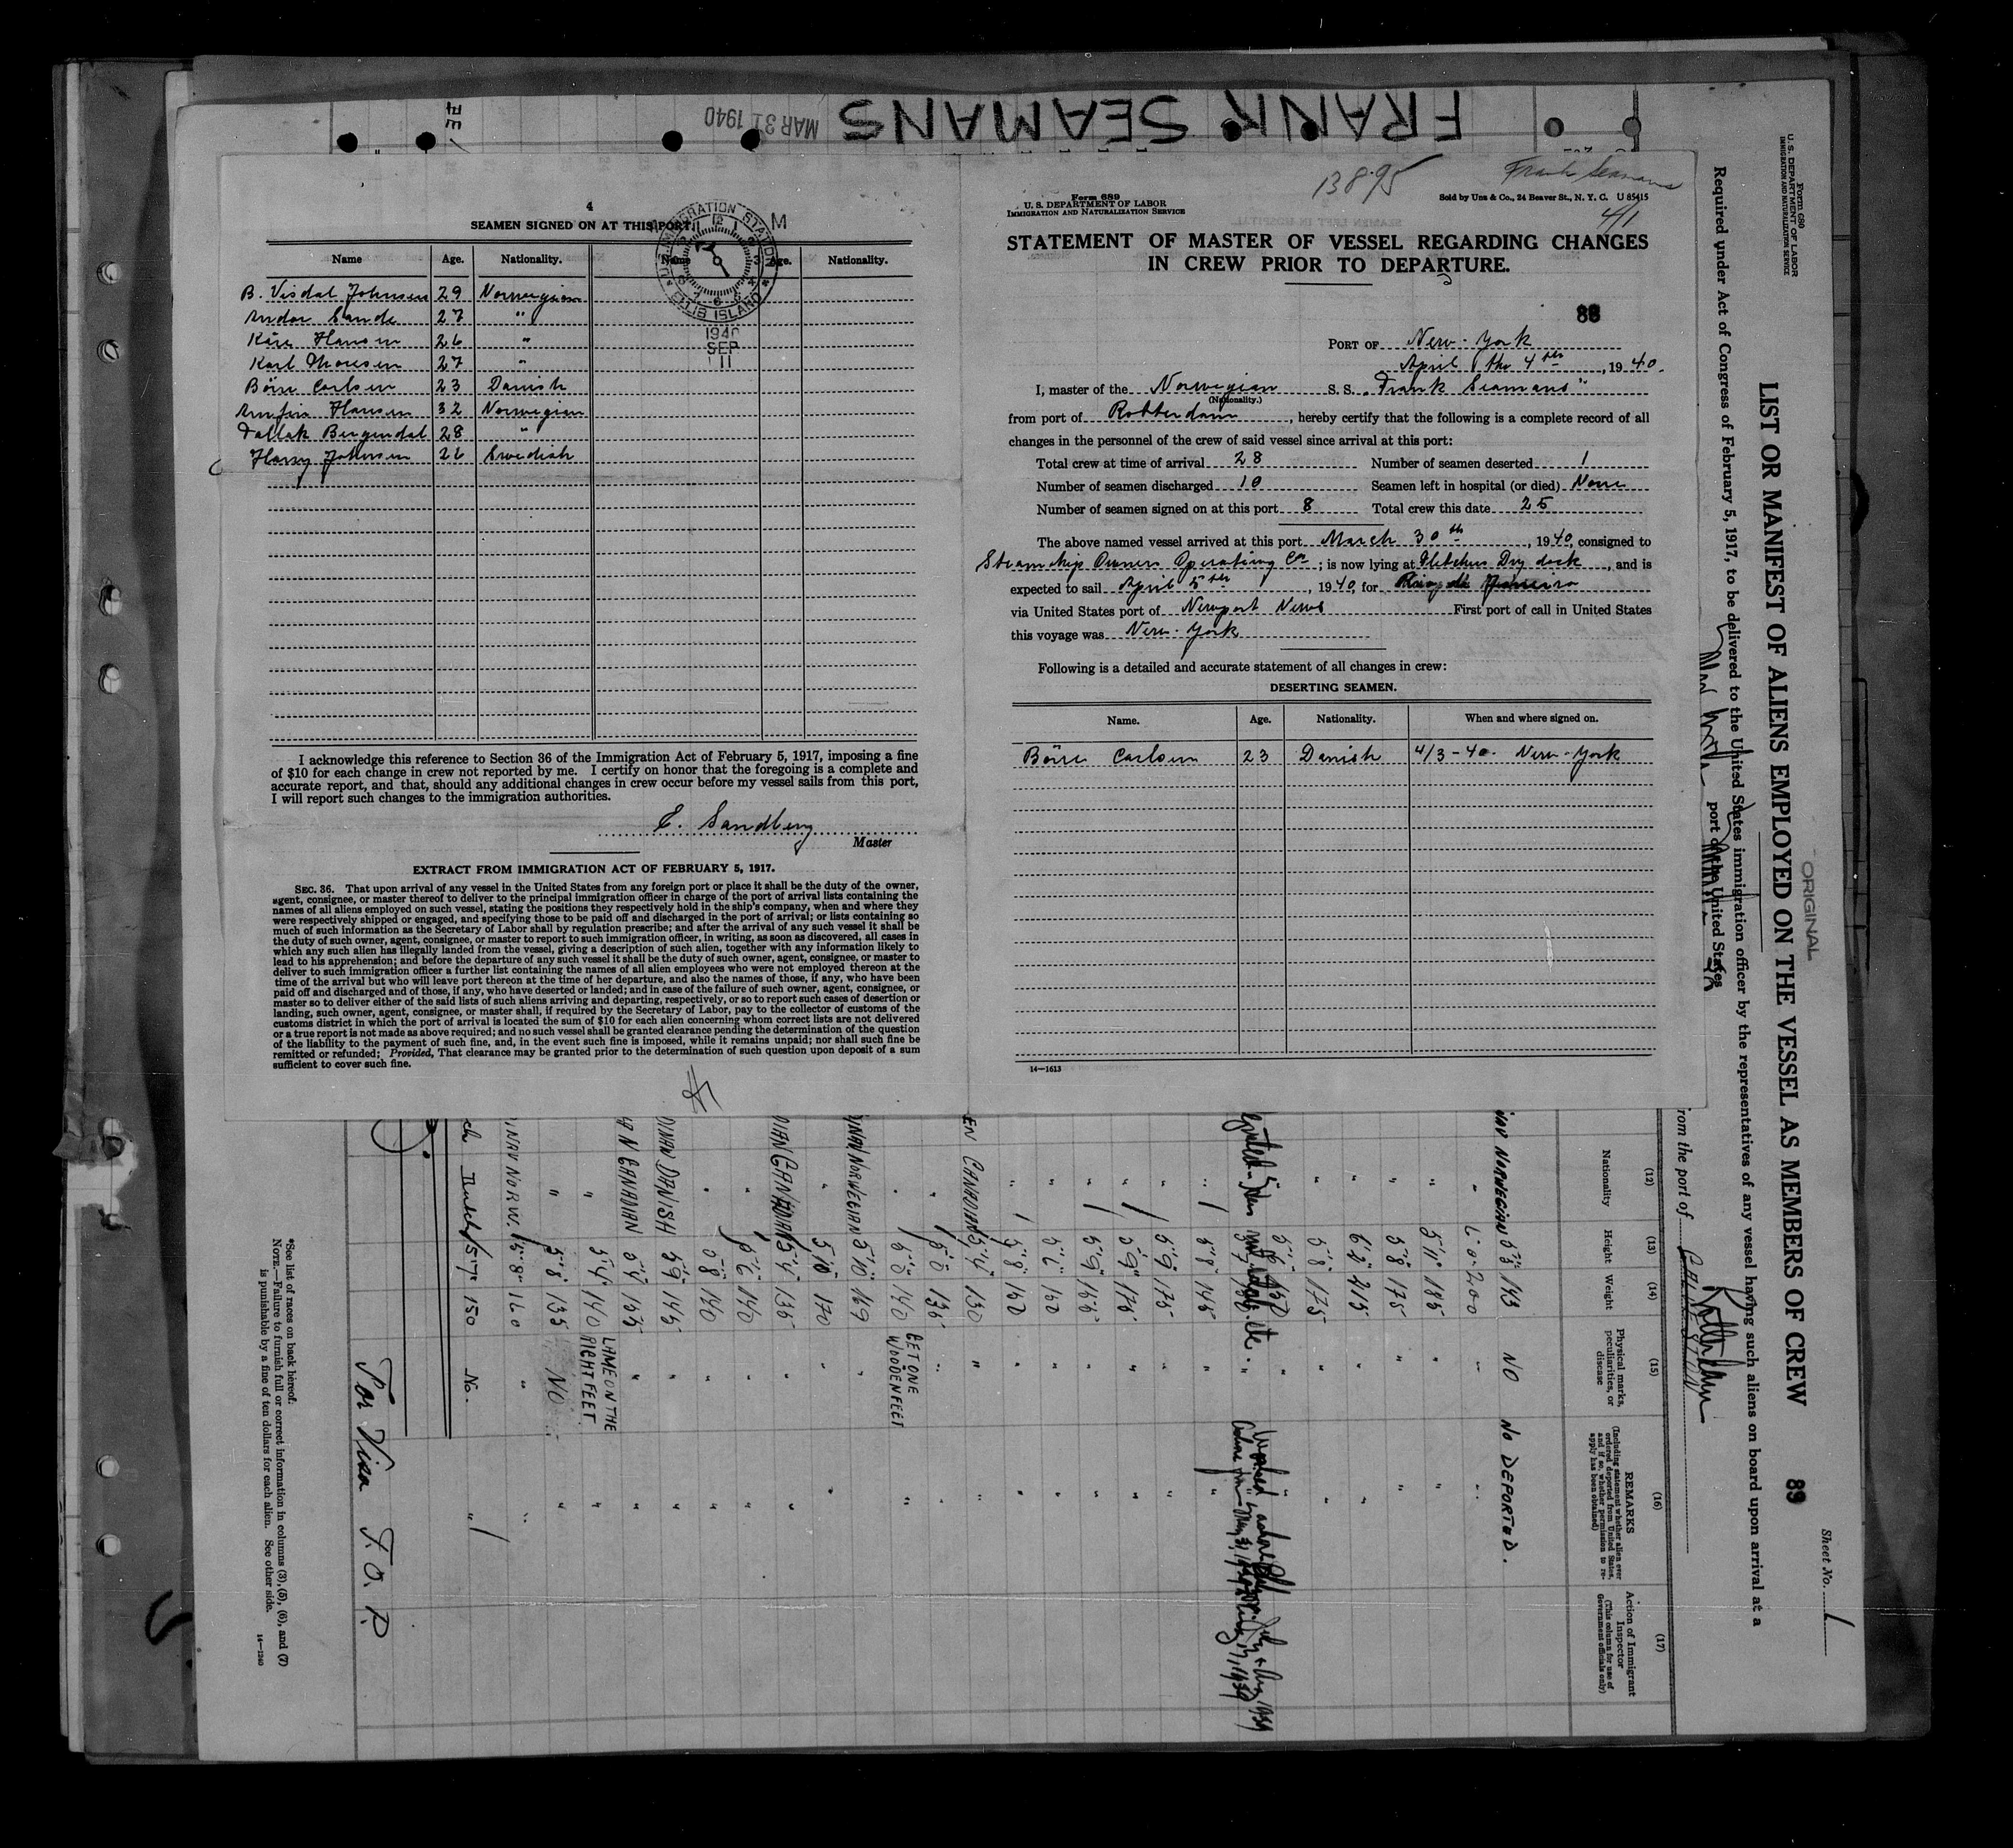 FRANK SEAMANS
MAR 31 1940
4
SEAMEN SIGNED ON AT THIS PORT.
Name Age. Nationality. Name Age. Nationality.
B. Visdal Johnsen 29 Norwegian
Andor Sande 27 "
Kåre Hansen 26 "
Karl Thoresen 27 "
Börre Carlsen 23 Danish
Arnfin Hansen 32 Norwegian
Tallak Bergendal 28 "
Harry Johnsen 26 Swedish
IMMIGRATION STATION
ELLIS ISLAND
M
1940
SEP
11
I acknowledge this reference to Section 36 of the Immigration Act of February 5, 1917, imposing a fine
of $10 for each change in crew not reported by me. I certify on honor that the foregoing is a complete and
accurate report, and that, should any additional changes in crew occur before my vessel sails from this port,
I will report such changes to the immigration authorities.
E. Sandberg
Master
EXTRACT FROM IMMIGRATION ACT OF FEBRUARY 5, 1917.
SEC. 36. That upon arrival of any vessel in the United States from any foreign port or place it shall be the duty of the owner,
agent, consignee, or master thereof to deliver to the principal immigration officer in charge of the port of arrival lists containing the
names of all aliens employed on such vessel, stating the positions they respectively hold in the ship's company, when and where they
were respectively shipped or engaged, and specifying those to be paid off and discharged in the port of arrival; or lists containing so
much of such information as the Secretary of Labor shall by regulation prescribe; and after the arrival of any such vessel it shall be
the duty of such owner, agent, consignee, or master to report to such immigration officer, in writing, as soon as discovered, all cases in
which any such alien has illegally landed from the vessel, giving a description of such alien, together with any information likely to
lead to his apprehension; and before the departure of any such vessel it shall be the duty of such owner, agent, consignee, or master to
deliver to such immigration officer a further list containing the names of all alien employees who were not employed thereon at the
time of the arrival but who will leave port thereon at the time of her departure, and also the names of those, if any, who have been
paid off and discharged and of those, if any, who have deserted or landed; and in case of the failure of such owner, agent, consignee, or
master so to deliver either of the said lists of such aliens arriving and departing, respectively, or so to report such cases of desertion or
landing, such owner, agent, consignee, or master shall, if required by the Secretary of Labor, pay to the collector of customs of the
customs district in which the port of arrival is located the sum of $10 for each alien concerning whom correct lists are not delivered
or a true report is not made as above required; and no such vessel shall be granted clearance pending the determination of the question
of the liability to the payment of such fine, and, in the event such fine is imposed, while it remains unpaid; nor shall such fine be
remitted or refunded; Provided, That clearance may be granted prior to the determination of such question upon deposit of a sum
sufficient to cover such fine.
13895
Frank Seamans
4/1
Form 689
U. S. DEPARTMENT OF LABOR
IMMIGRATION AND NATURALIZATION SERVICE
Sold by Unz & Co., 24 Beaver St., N. Y. C. U 85415
STATEMENT OF MASTER OF VESSEL REGARDING CHANGES
IN CREW PRIOR TO DEPARTURE.
88
PORT OF New-York
April the 4th, 1940.
I, master of the Norwegian S. S. "Frank Seamans"
(Nationality.)
from port of Rotterdam, hereby certify that the following is a complete record of all
changes in the personnel of the crew of said vessel since arrival at this port:
Total crew at time of arrival 28 Number of seamen deserted 1
Number of seamen discharged 10 Seamen left in hospital (or died) None
Number of seamen signed on at this port 8 Total crew this date 25
The above named vessel arrived at this port March 30th, 1940, consigned to
Steamship Owners Operating Co; is now lying at Fletchers Dry dock, and is
expected to sail April 5th, 1940, for Rio de Janeiro
via United States port of Newport News First port of call in United States
this voyage was New-York
Following is a detailed and accurate statement of all changes in crew:
DESERTING SEAMEN.
Name. Age. Nationality. When and where signed on.
Börre Carlsen 23 Danish 4/3-40. New-York
14—1613
Form 680
U. S. DEPARTMENT OF LABOR
IMMIGRATION AND NATURALIZATION SERVICE
ORIGINAL
Sheet No. 1
LIST OR MANIFEST OF ALIENS EMPLOYED ON THE VESSEL AS MEMBERS OF CREW 89
Required under Act of Congress of February 5, 1917, to be delivered to the United States immigration officer by the representatives of any vessel having such aliens on board upon arrival at a
port of the United States
from the port of Rotterdam
(12) (13) (14) (15) (16) (17)
Nationality Height Weight Physical marks, peculiarities, or disease
REMARKS
(Including statement whether alien ever ordered deported from United States, and if so, whether permission to reapply has been obtained)
Action of Immigrant Inspector
(This column for use of Government officials only)
NORWEGIAN 5'7½ 143 NO NO DEPORTED.
" 6'0" 200 " "
" 5'11" 185 " "
" 5'8 175 " "
" 6'2 215
" 5'8" 175 "
" 5'8" 145 " "
" 5'9" 175 " "
" 5'9" 175 " "
" 5'9" 155 " "
" 5'6" 150 " "
" 5'8" 150 " "
CANADIAN 5'4" 130 " "
" 5'0 135 "
" 5'8" 140 GET ONE WOODENFEET "
NORWEGIAN 5'10" 169 "
" 5'10 170 " "
CANADIAN 5'4" 135 " "
" 5'6" 140 " "
" 5'8" 140 " "
DANISH 5'9" 145 " "
CANADIAN 5'4 135 " "
" 5'4" 140 LAME ON THE RIGHT FEET "
" 5'8 135 NO "
NORW. 5'8" 160 " "
Dutch 5'7" 150 No. "
For Visa F. O. P.
*See list of races on back hereof.
NOTE.—Failure to furnish full or correct information in columns (3), (5), (6), and (7)
is punishable by a fine of ten dollars for each alien. See other side.
14—1240